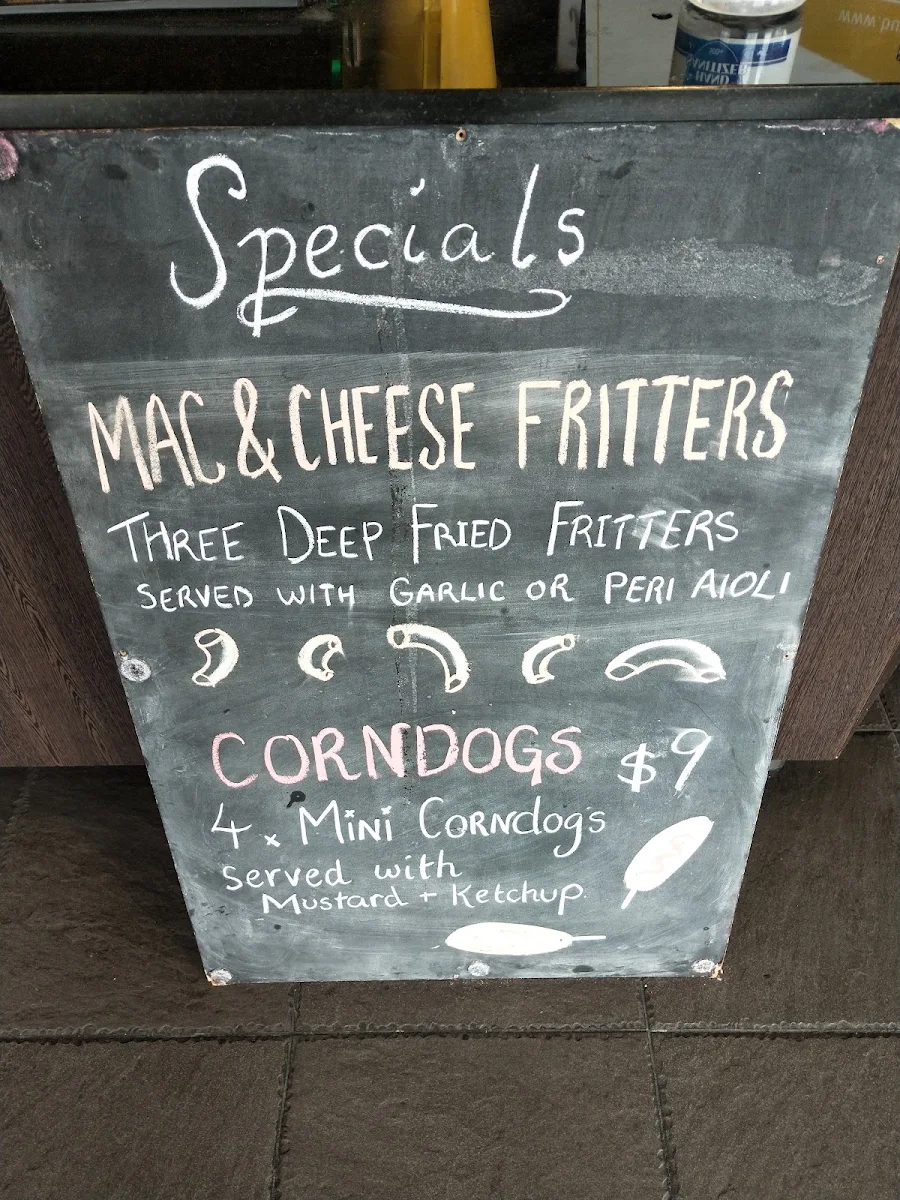 Specials
MAC & CHEESE FRITTERS
THREE DEEP FRIED FRITTERS
SERVED WITH GARLIC OR PERI AIOLI
CORNDOGS $9
4 x Mini Corndogs
served with
Mustard + Ketchup.